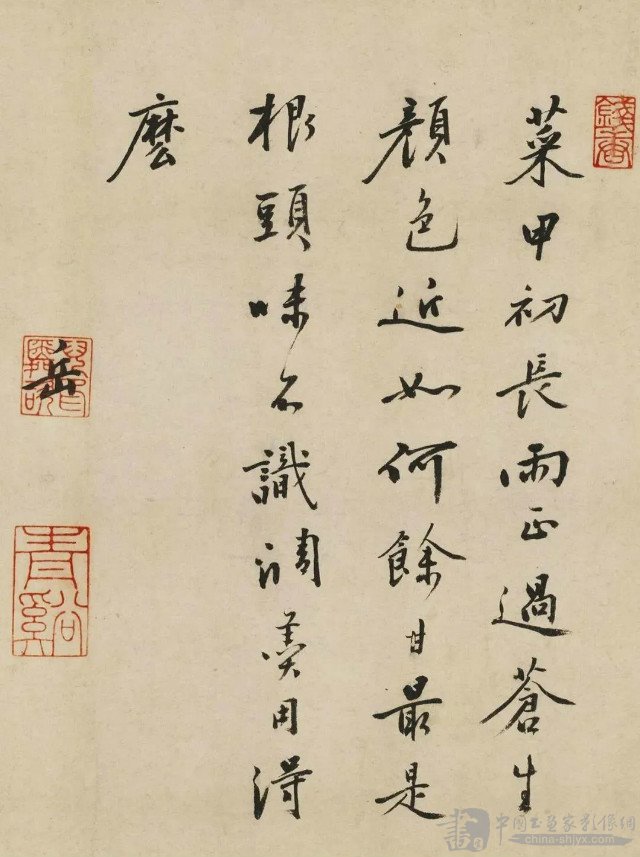 菜甲初長雨正過蒼生
顏色近如何餘甘最是
根頭味不識調羹用得
麼
岳
青谿
書
中國书画家影像網
china-shjyx.com